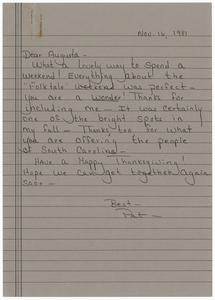 Nov. 16, 1981
Dear Augusta -
What a lovely way to spend a
weekend! Everything about the
"Folktale weekend was perfect -
you are a wonder! Thanks for
including me - It was certainly
one of the bright spots in
my fall - Thanks too for what
you are offering the people
of South Carolina -
Have a Happy Thanksgiving!
Hope we can get together again
soon -
Best -
Pat -